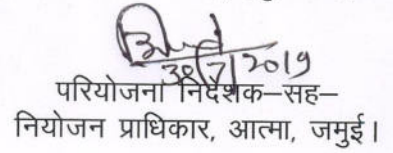 30/7/2019
परियोजना निदेशक–सह–
नियोजन प्राधिकार, आत्मा, जमुई।